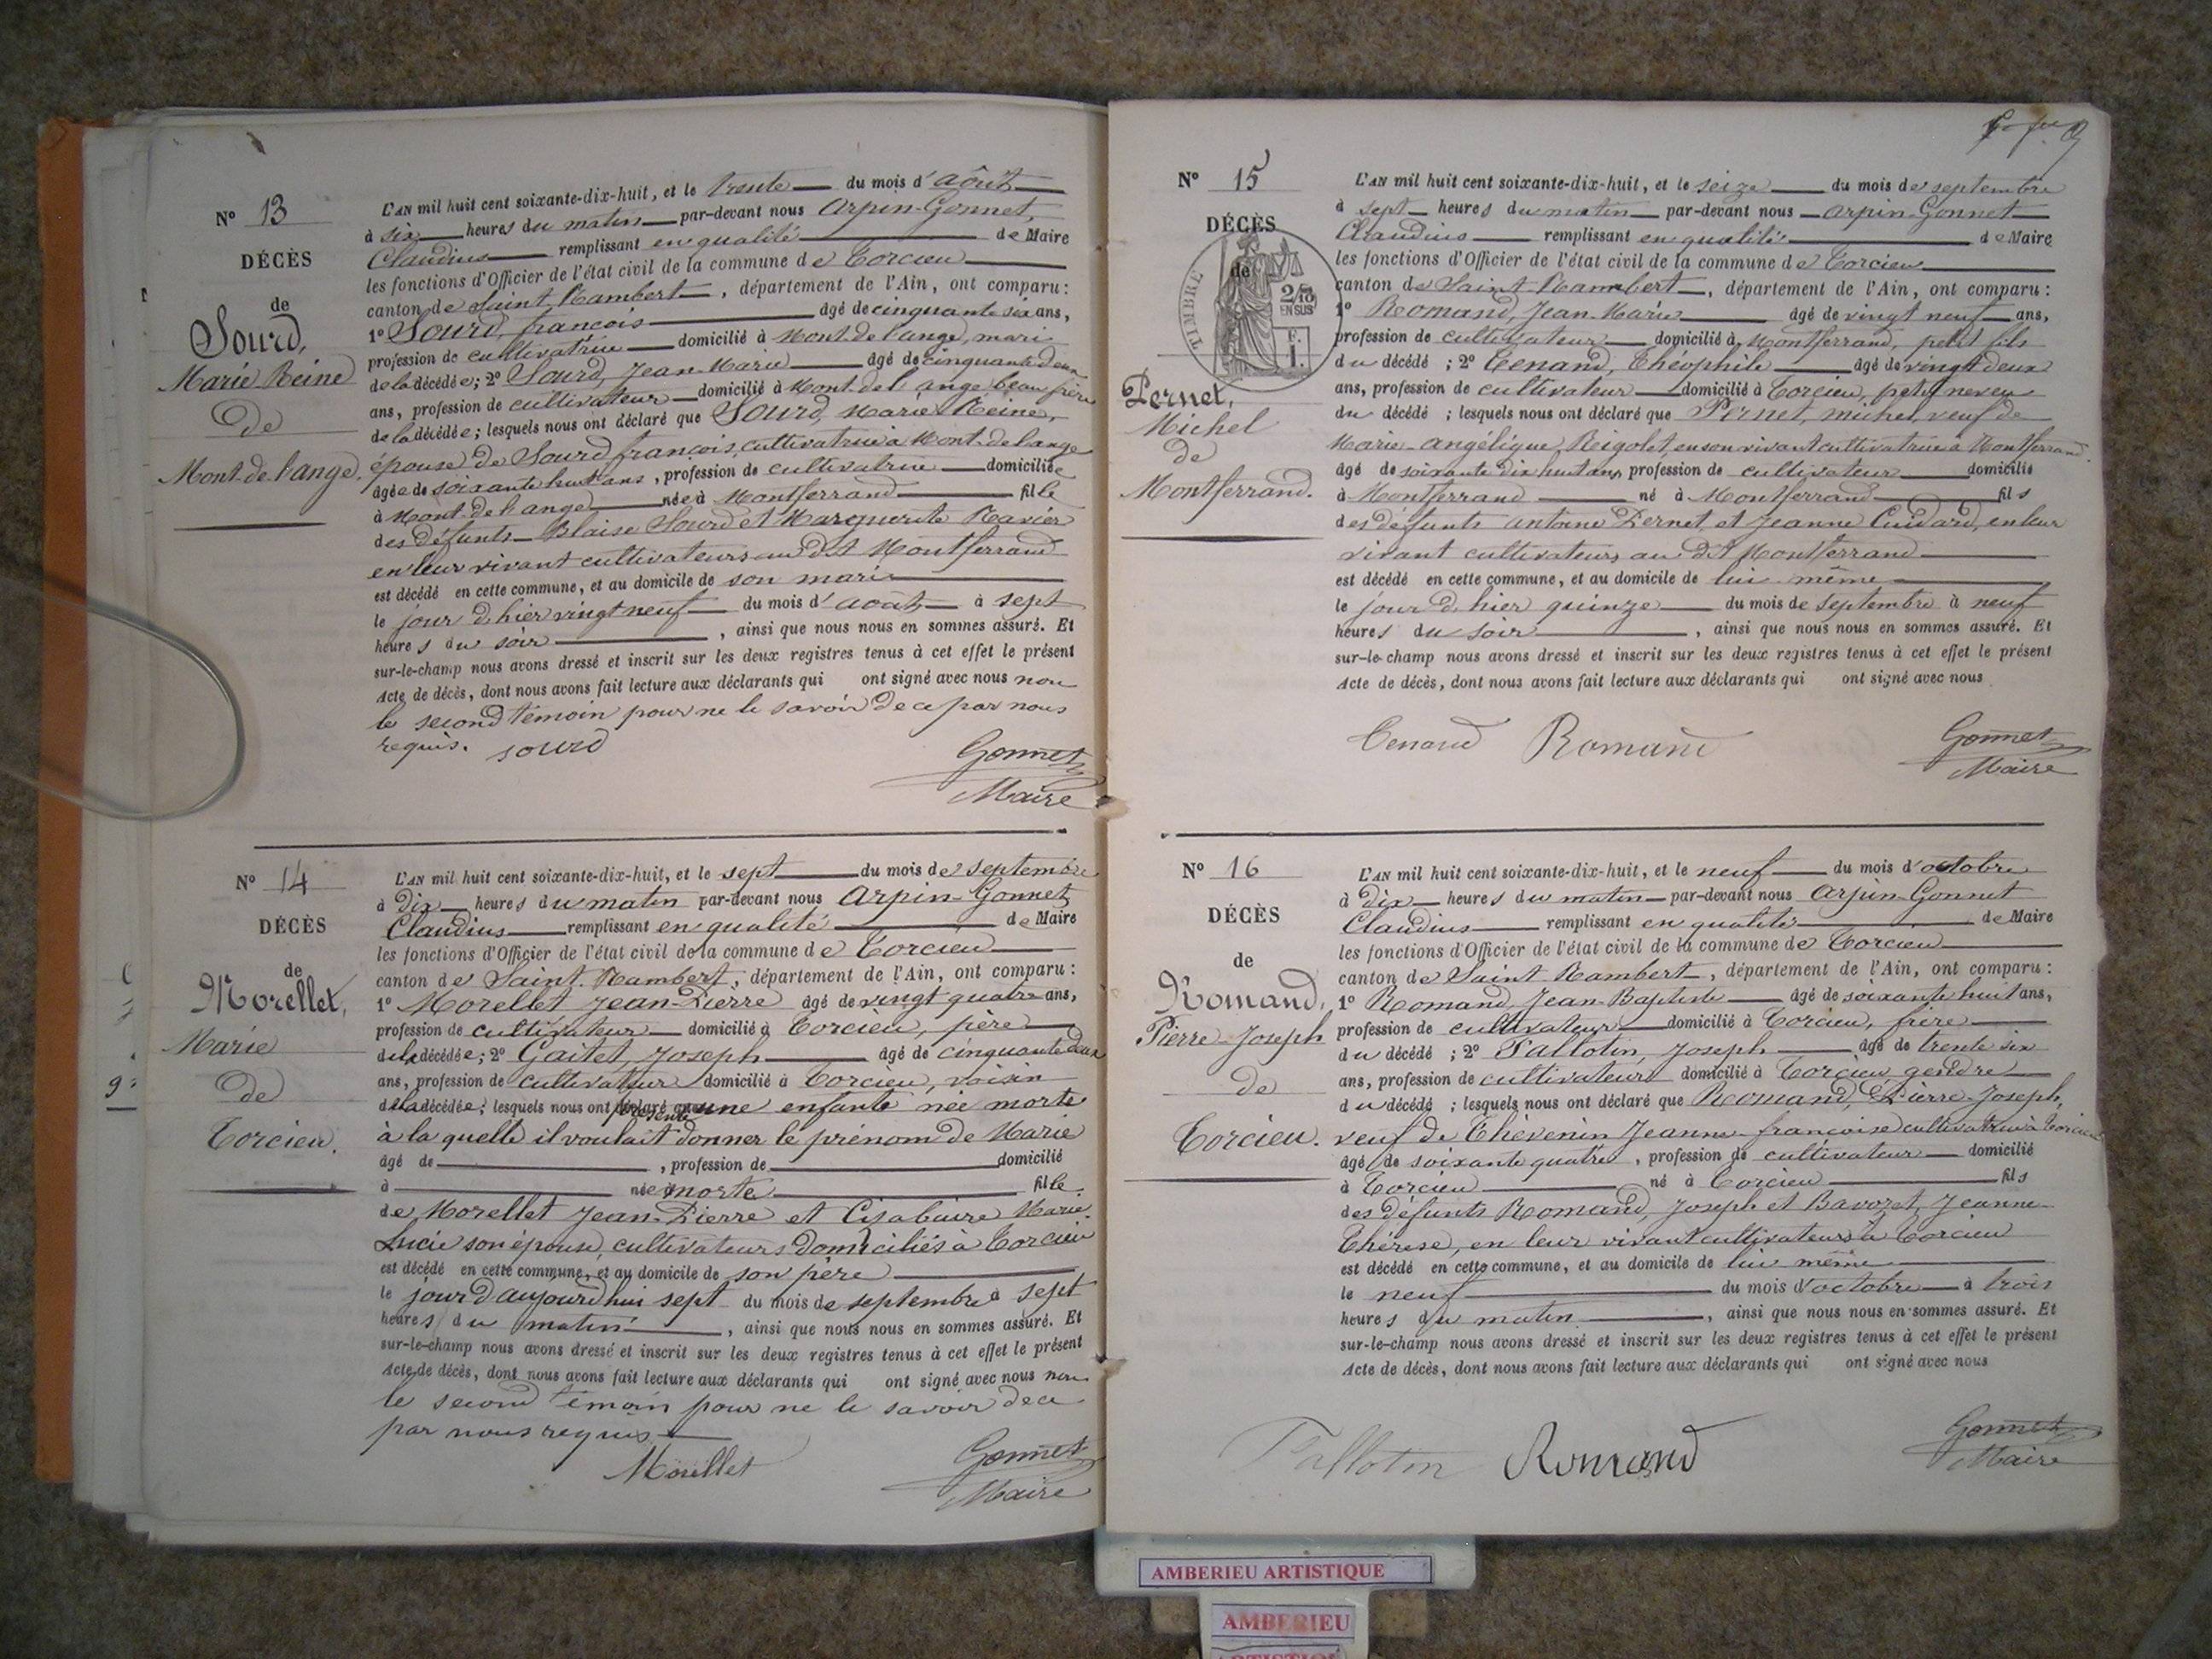 Nº 13
DÉCÈS
de
Sourd,
Marie Reine
de
Mont-de-l'ange.
L'AN mil huit cent soixante-dix-huit, et le trente du mois d'août
à six heures du matin par-devant nous Arpin-Gonnet,
Claudius remplissant en qualité de Maire
les fonctions d'Officier de l'état civil de la commune de Torcieu
canton de Saint Rambert, département de l'Ain, ont comparu:
1º Sourd, françois âgé de cinquante six ans,
profession de cultivatrice domicilié à Mont-de-l'ange, mari
de la décédée; 2º Sourd, Jean-Marie âgé de cinquante deux
ans, profession de cultivateur domicilié à Mont-de l'ange beau frère
de la décédée; lesquels nous ont déclaré que Sourd, Marie Reine,
épouse de Sourd françois, cultivatrice à Mont-de l'ange
âgée de soixante huit ans, profession de cultivatrice domiciliée
à Mont-de l'ange née à Montferrand fille
des défunts Blaise Sourd et Marguerite Ravier
en leur vivant cultivateurs au dit Montferrand
est décédé en cette commune, et au domicile de son mari
le jour d'hier vingt neuf du mois d'août à sept
heures du soir, ainsi que nous nous en sommes assuré. Et
sur-le-champ nous avons dressé et inscrit sur les deux registres tenus à cet effet le présent
Acte de décès, dont nous avons fait lecture aux déclarants qui ont signé avec nous non
le second témoin pour ne le savoir de ce par nous
requis. sourd
Gonnet
Maire
Nº 14
DÉCÈS
de
Morellet,
Marie
de
Torcieu.
L'AN mil huit cent soixante-dix-huit, et le sept du mois de septembre
à dix heures du matin par-devant nous Arpin-Gonnet
Claudius remplissant en qualité de Maire
les fonctions d'Officier de l'état civil de la commune de Torcieu
canton de Saint-Rambert, département de l'Ain, ont comparu:
1º Morellet Jean-Pierre âgé de vingt quatre ans,
profession de cultivateur domicilié à Torcieu, père
de la décédée; 2º Gaitet, Joseph âgé de cinquante deux
ans, profession de cultivateur domicilié à Torcieu, voisin
de la décédée; lesquels nous ont présenté une enfante née morte
à la quelle il voulait donner le prénom de Marie
âgé de , profession de domicilié
à née morte fille
de Morellet Jean-Pierre et Marie
Lucie son épouse, cultivateurs domiciliés à Torcieu
est décédé en cette commune, et au domicile de son père
le jour d'aujourd'hui sept du mois de septembre à sept
heures du matin, ainsi que nous nous en sommes assuré. Et
sur-le-champ nous avons dressé et inscrit sur les deux registres tenus à cet effet le présent
Acte de décès, dont nous avons fait lecture aux déclarants qui ont signé avec nous non
le second témoin pour ne le savoir de ce
par nous requis
Morellet
Gonnet
Maire
Nº 15
DÉCÈS
de
TIMBRE
2/10
EN SUS
F.
1.
Pernet,
Michel
de
Montferrand.
L'AN mil huit cent soixante-dix-huit, et le seize du mois de septembre
à sept heures du matin par-devant nous Arpin-Gonnet
Claudius remplissant en qualité de Maire
les fonctions d'Officier de l'état civil de la commune de Torcieu
canton de Saint Rambert, département de l'Ain, ont comparu:
1º Romand, Jean-Marie âgé de vingt neuf ans,
profession de cultivateur domicilié à Montferrand, petit fils
du décédé; 2º Tenand, Théophile âgé de vingt deux
ans, profession de cultivateur domicilié à Torcieu, petit neveu
du décédé; lesquels nous ont déclaré que Pernet, michel, veuf de
Marie-angélique Rigolet, en son vivant cultivatrice à Montferrand.
âgé de soixante dix huit ans, profession de cultivateur domicilié
à Montferrand né à Montferrand fils
des défunts antoine Pernet, et Jeanne Cuidard, en leur
vivant cultivateurs au dit Montferrand
est décédé en cette commune, et au domicile de lui même
le jour d'hier quinze du mois de septembre à neuf
heures du soir, ainsi que nous nous en sommes assuré. Et
sur-le-champ nous avons dressé et inscrit sur les deux registres tenus à cet effet le présent
Acte de décès, dont nous avons fait lecture aux déclarants qui ont signé avec nous
Tenand Romand
Gonnet
Maire
Nº 16
DÉCÈS
de
Romand,
Pierre-Joseph
de
Torcieu.
L'AN mil huit cent soixante-dix-huit, et le neuf du mois d'octobre
à dix heures du matin par-devant nous Arpin-Gonnet
Claudius remplissant en qualité de Maire
les fonctions d'Officier de l'état civil de la commune de Torcieu
canton de Saint Rambert, département de l'Ain, ont comparu:
1º Romand, Jean-Baptiste âgé de soixante huit ans,
profession de cultivateur domicilié à Torcieu, frère
du décédé; 2º Pallotin, Joseph âgé de trente six
ans, profession de cultivateur domicilié à Torcieu, gendre
du décédé; lesquels nous ont déclaré que Romand, Pierre-Joseph,
veuf de Thevenin Jeanne-françoise cultivatrice à Torcieu
âgé de soixante quatre, profession de cultivateur domicilié
à Torcieu né à Torcieu fils
des défunts Romand, Joseph et Bavozet, Jeanne
Thérèse, en leur vivant cultivateurs à Torcieu
est décédé en cette commune, et au domicile de lui même
le neuf du mois d'octobre à trois
heures du matin, ainsi que nous nous en sommes assuré. Et
sur-le-champ nous avons dressé et inscrit sur les deux registres tenus à cet effet le présent
Acte de décès, dont nous avons fait lecture aux déclarants qui ont signé avec nous
Pallotin Romand
Gonnet
Maire
AMBERIEU ARTISTIQUE
AMBERIEU
ARTISTIQUE